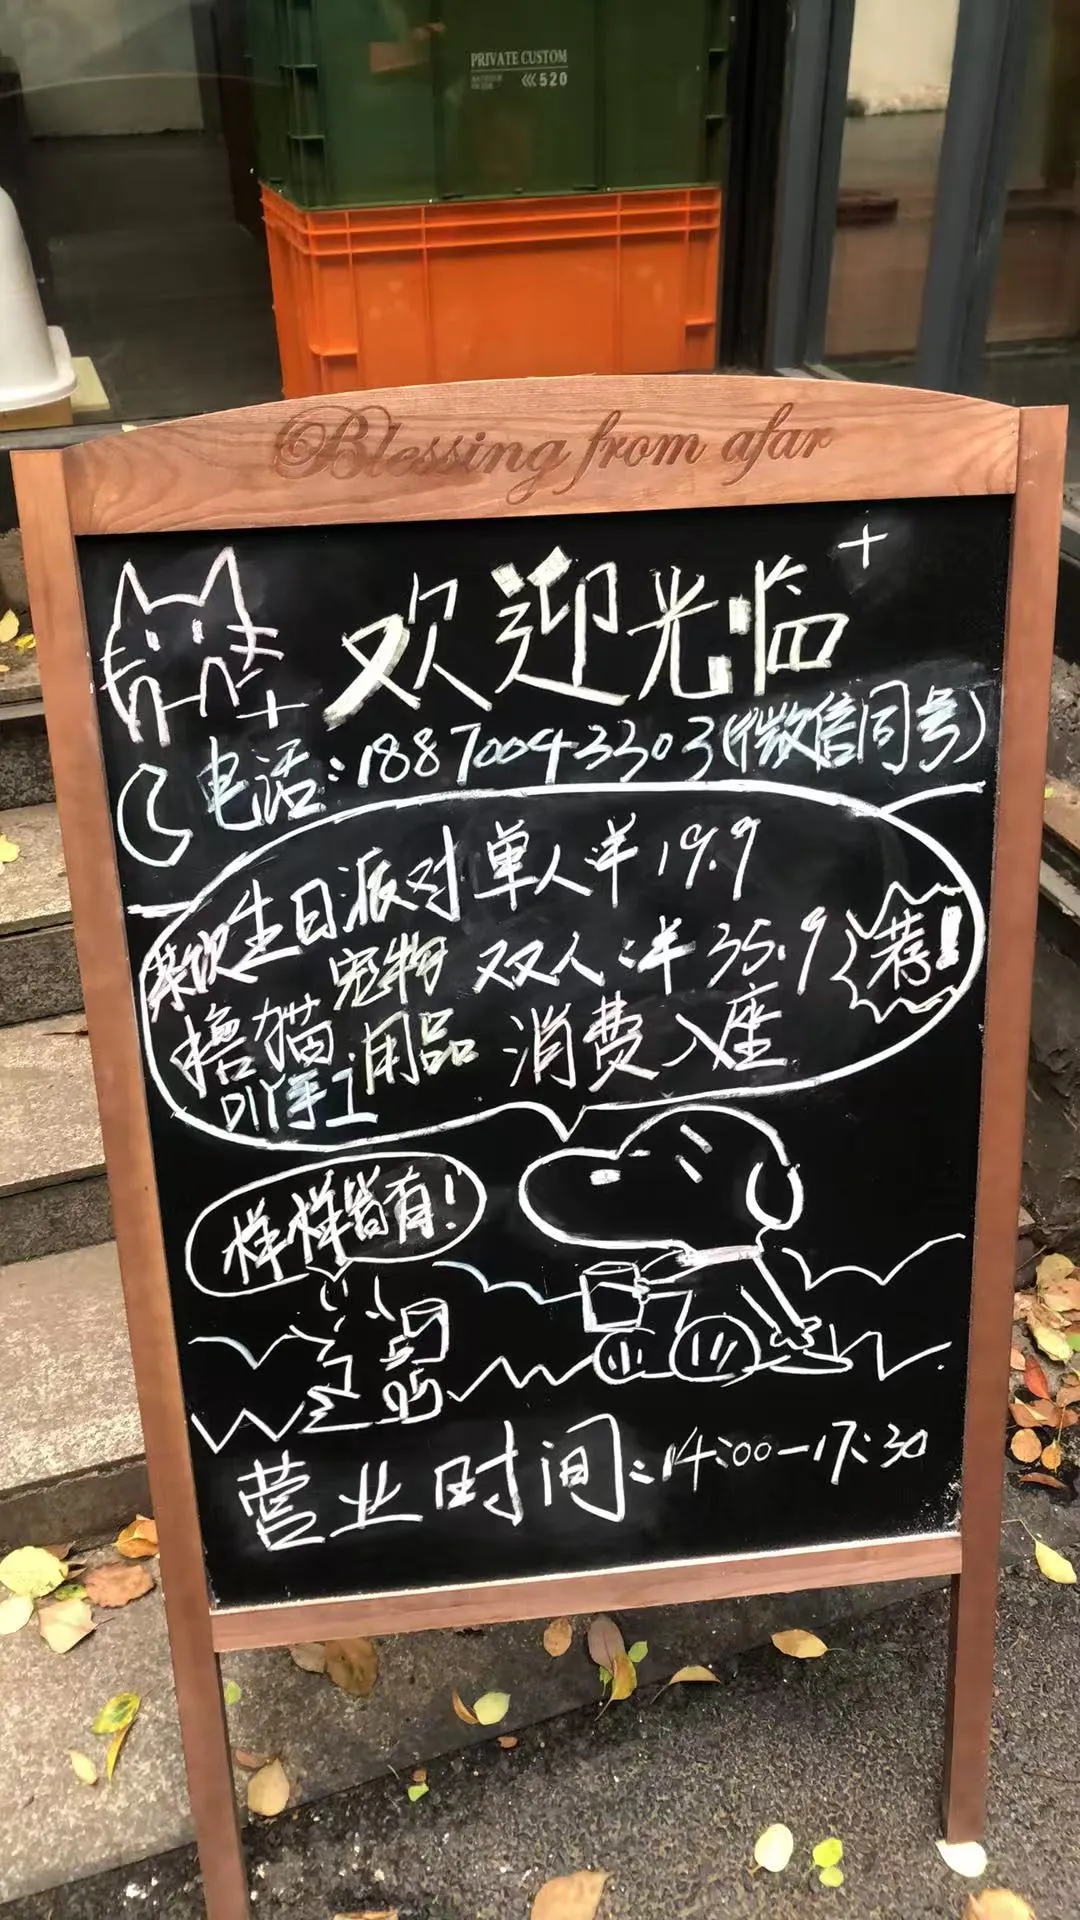 PRIVATE CUSTOM
520
Blessing from afar
欢迎光临
电话:18870043303(微信同号)
生日派对 单人:¥19.9
软饮 宠物 双人:¥35.9 荐!
撸猫 用品 消费入座
DIY手工
样样皆有!
营业时间:14:00—17:30